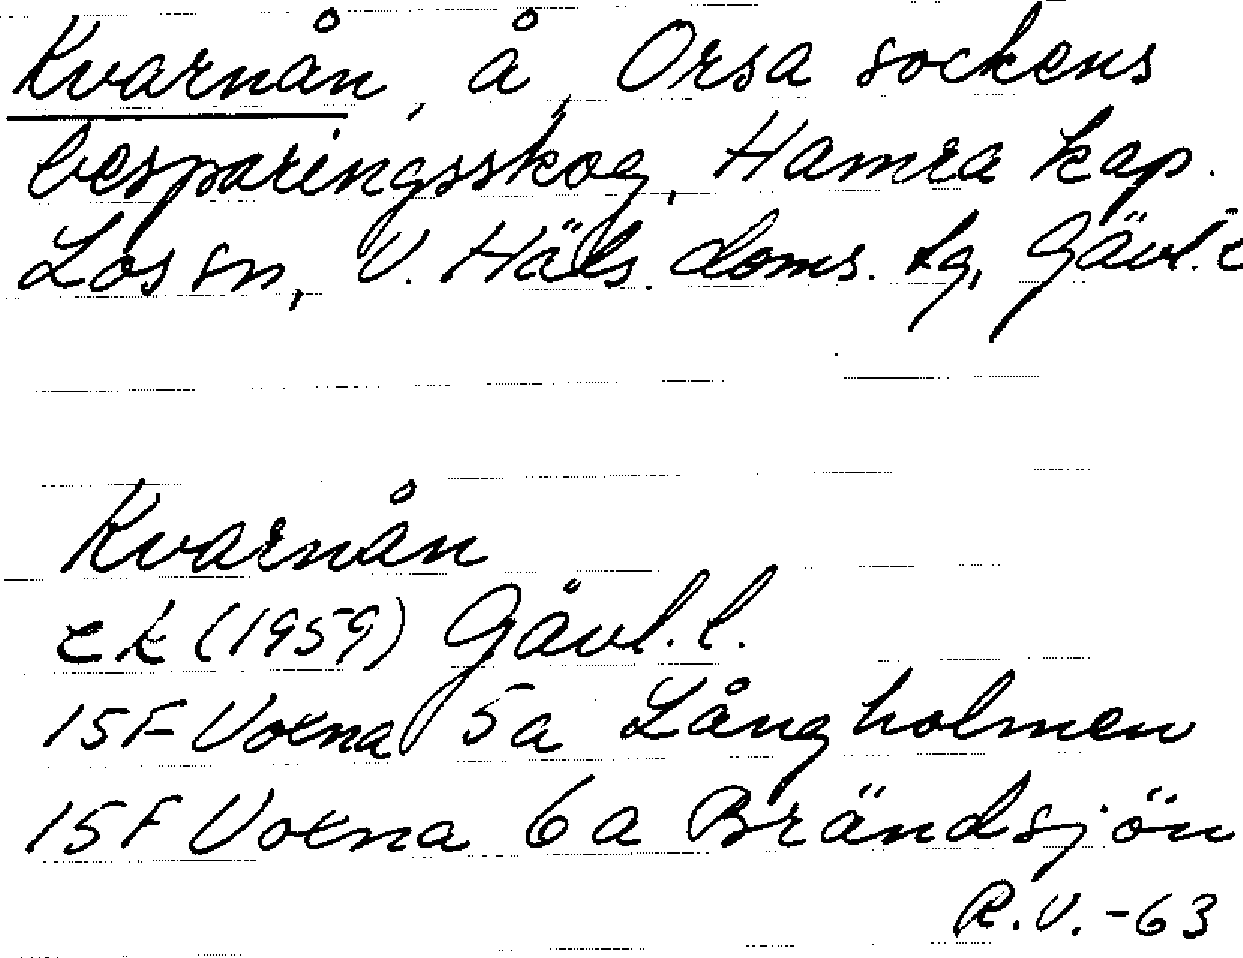 Kvarnån, å, Orsa sockens
besparingsskog, Hamra kap.
Los sn, V. Häls. doms. tg, Gävl. l
Kvarnån
ek (1959) Gävl. l.
15F Voxna 5a Långholmen
15F Voxna 6a Brändsjön
R.V. -63